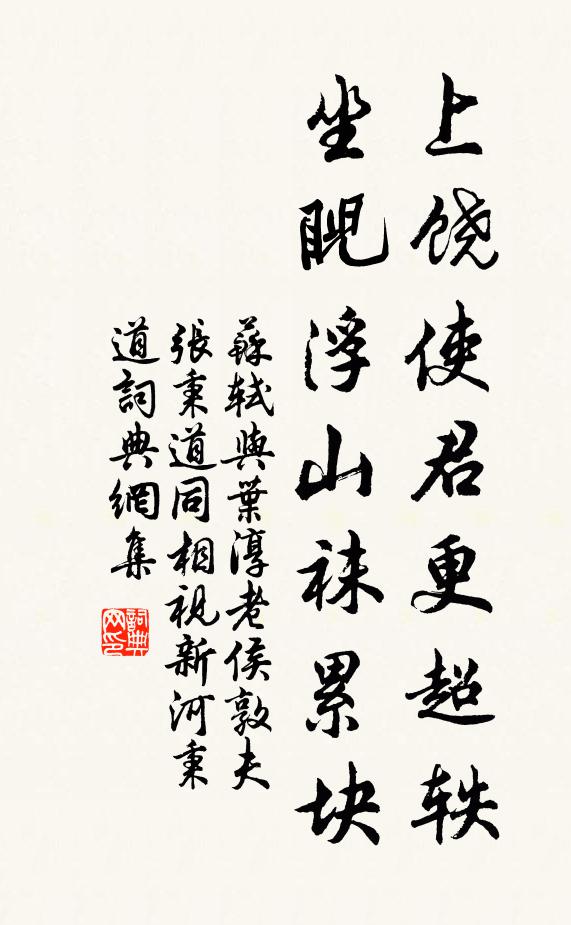 上饶使君更超轶
坐睨浮山袜累块
蘇轼與葉淳老侯敦夫
張秉道同相視新河秉
道詞典網集
詞典网印